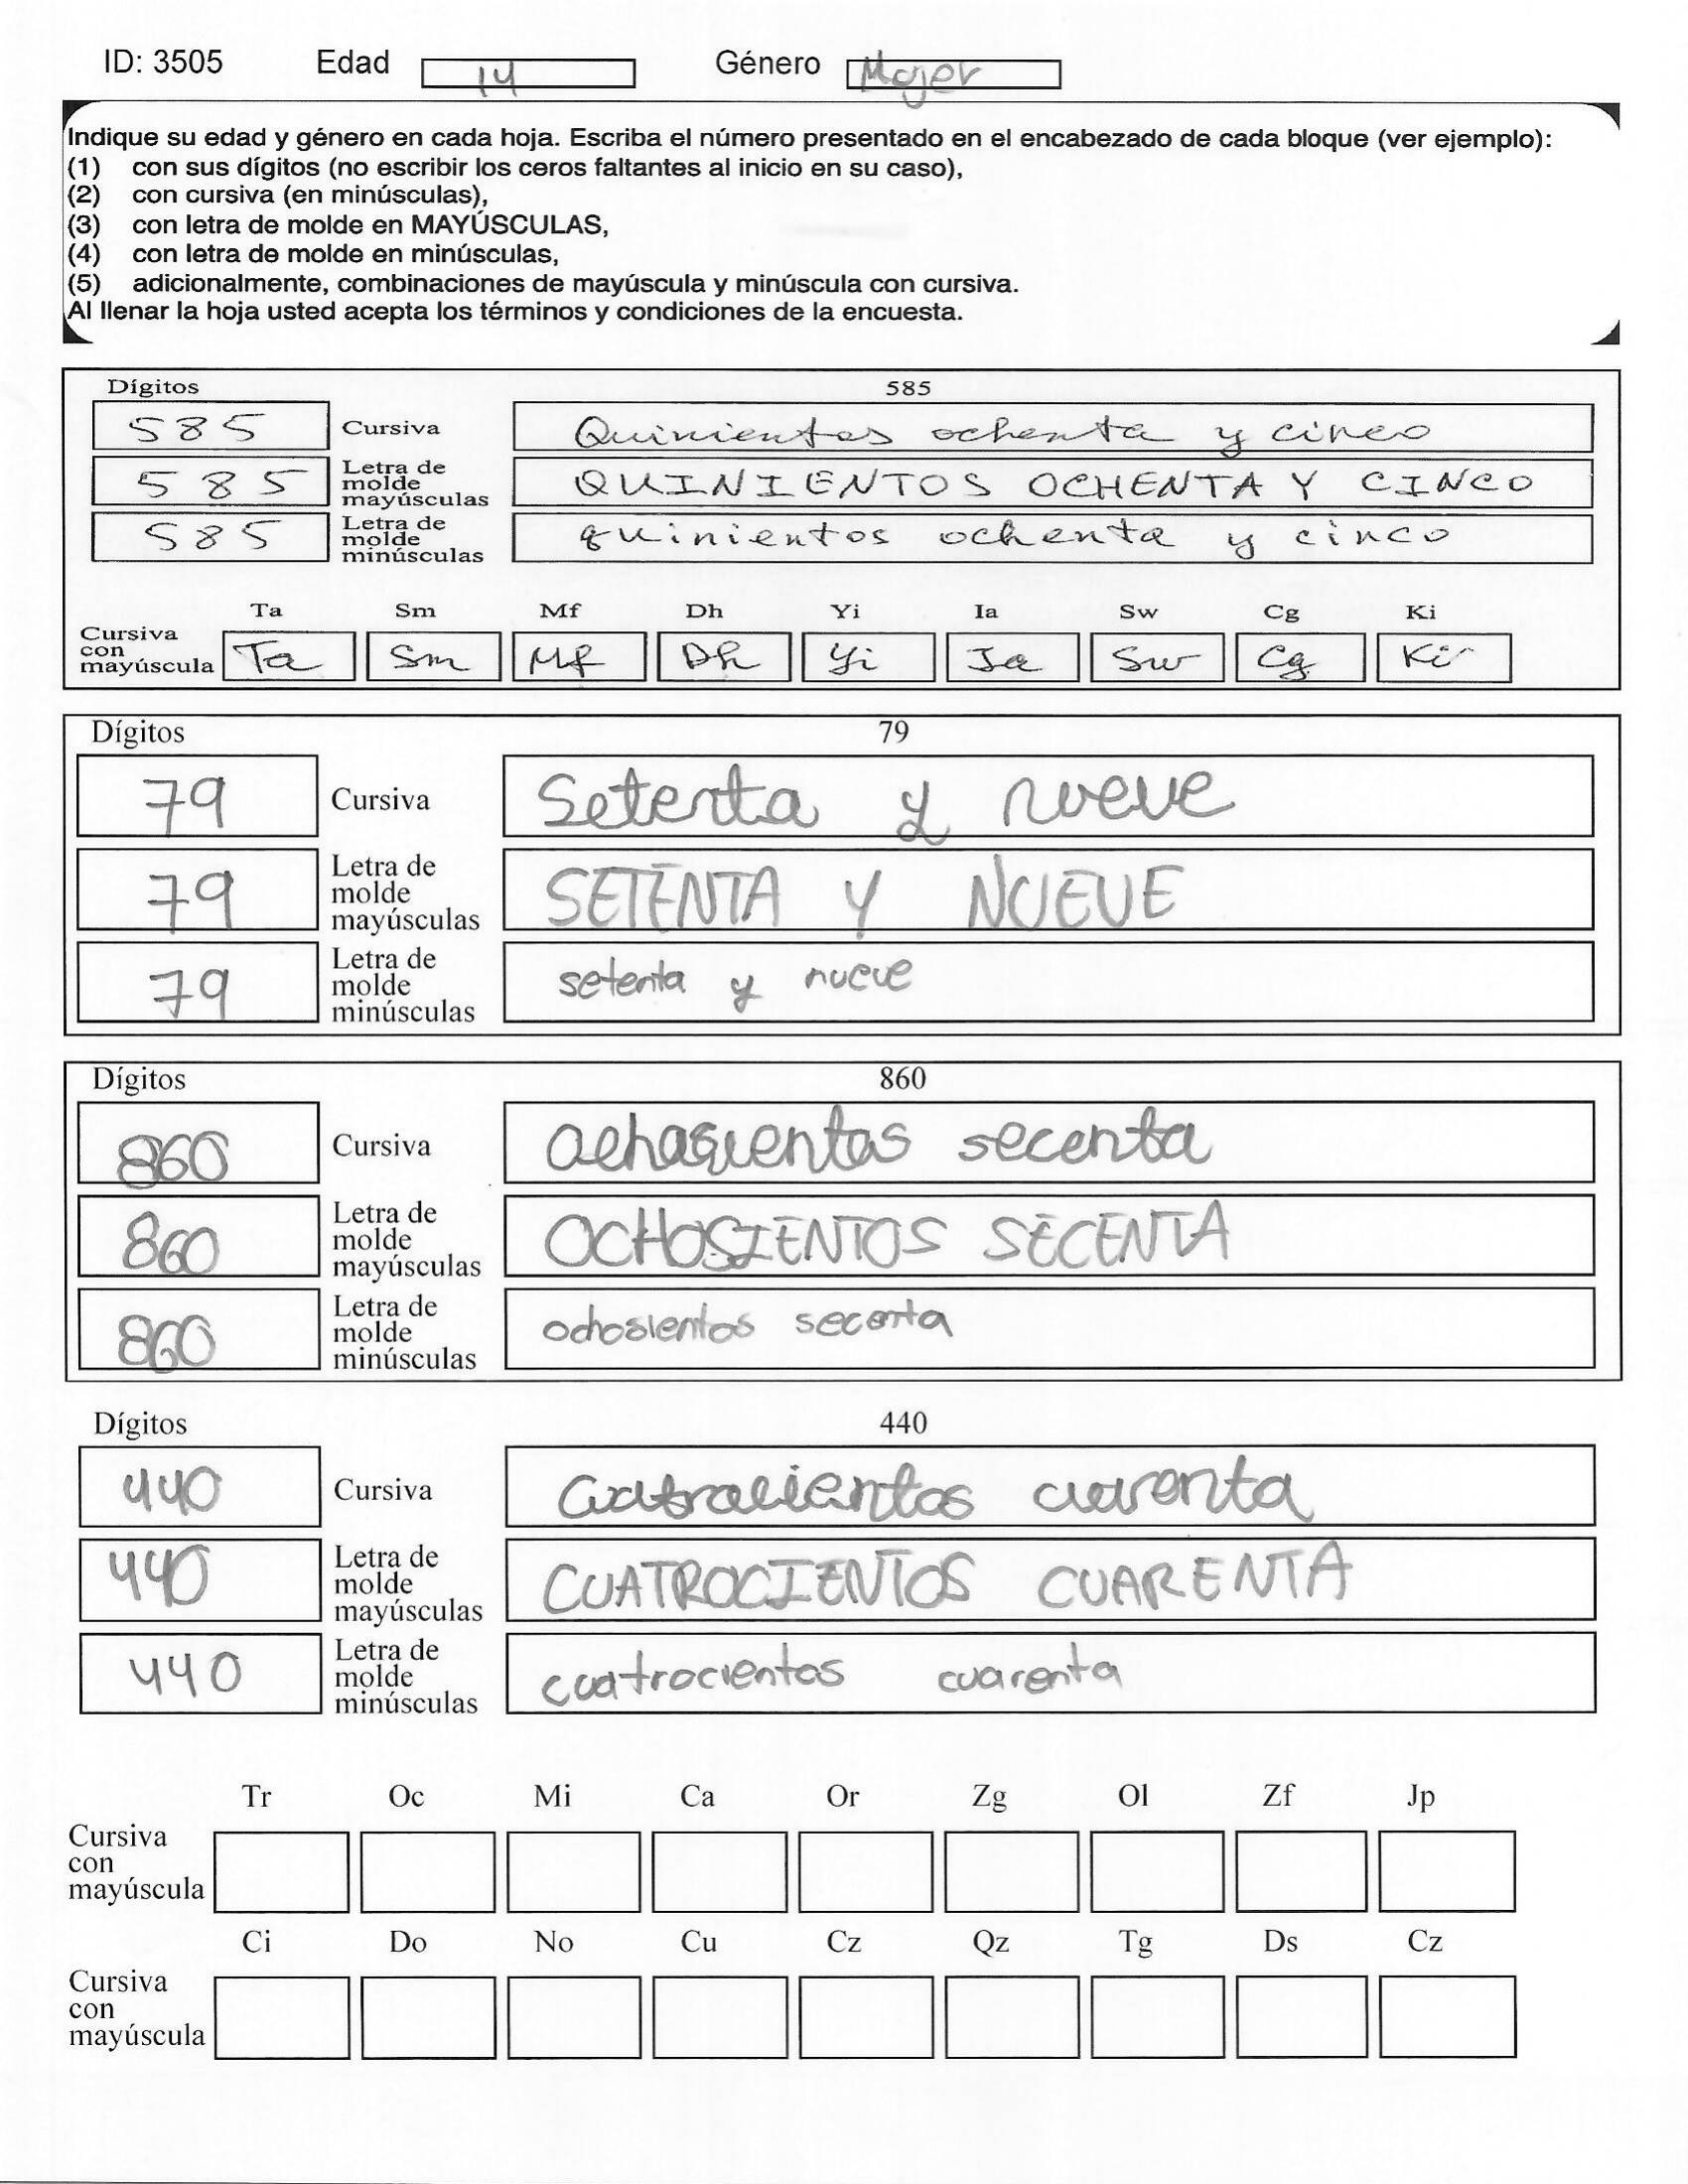 ID: 3505 Edad 14 Género Mujer
Indique su edad y género en cada hoja. Escriba el número presentado en el encabezado de cada bloque (ver ejemplo):
(1) con sus dígitos (no escribir los ceros faltantes al inicio en su caso),
(2) con cursiva (en minúsculas),
(3) con letra de molde en MAYÚSCULAS,
(4) con letra de molde en minúsculas,
(5) adicionalmente, combinaciones de mayúscula y minúscula con cursiva.
Al llenar la hoja usted acepta los términos y condiciones de la encuesta.
Dígitos 585
585 Cursiva Quinientos ochenta y cinco
585 Letra de molde mayúsculas QUINIENTOS OCHENTA Y CINCO
585 Letra de molde minúsculas quinientos ochenta y cinco
Ta Sm Mf Dh Yi Ia Sw Cg Ki
Cursiva con mayúscula Ta Sm Mf Dh Yi Ia Sw Cg Ki
Dígitos 79
79 Cursiva Setenta y nueve
79 Letra de molde mayúsculas SETENTA Y NUEVE
79 Letra de molde minúsculas setenta y nueve
Dígitos 860
860 Cursiva ochosientos secenta
860 Letra de molde mayúsculas OCHOSIENTOS SECENTA
860 Letra de molde minúsculas ochosientos secenta
Dígitos 440
440 Cursiva cuatrocientos cuarenta
440 Letra de molde mayúsculas CUATROCIENTOS CUARENTA
440 Letra de molde minúsculas cuatrocientos cuarenta
Tr Oc Mi Ca Or Zg Ol Zf Jp
Cursiva con mayúscula
Ci Do No Cu Cz Qz Tg Ds Cz
Cursiva con mayúscula